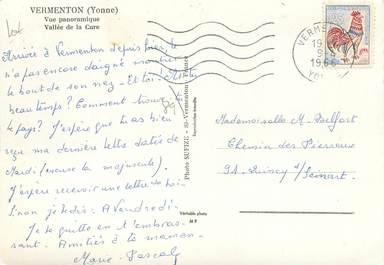 VERMENTON (Yonne)
Vue panoramique
Vallée de la Cure
Arrivée à Vermenton depuis hier, le
n'a pas encore daigné montrer
le bout de son nez - Et toi
beau temps? Comment trouves-tu
le pays? J'espère que tu as bien
reçu ma dernière lettre datée de
Mardi (excuse la majuscule).
J'espère recevoir une lettre de toi
Sinon je te dis: A Vendredi.
Je te quitte en t'embras-
sant. Amitiés à ta maman.
Marie-Pascale
Photo SUFIZE - 89-Vermenton - France
Reproduction interdite
Véritable photo
VERMENTON
19
1966
YONNE
Mademoiselle M. Belfort
Chemin des Pierreux
91. Quincy s/Sénart